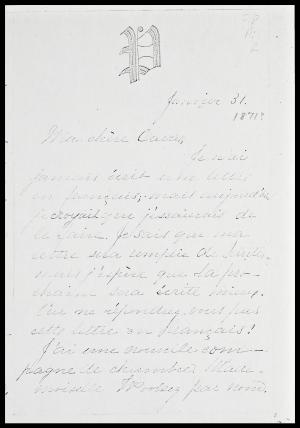 Janvier 31.
1871?
Ma chère Carey,
Je n'ai
jamais écrit une lettre
en français, mais aujourd'hui
je croyait que j'essaierais de
le faire. Je sais que ma
lettre sera remplie de fautes
mais j'espère que la pro-
chaine sera écrite mieux.
ne répondrez vous pas
cette lettre en français!
J'ai une nouvelle com-
pagne de chambre Made-
moiselle Woolsey par nom.